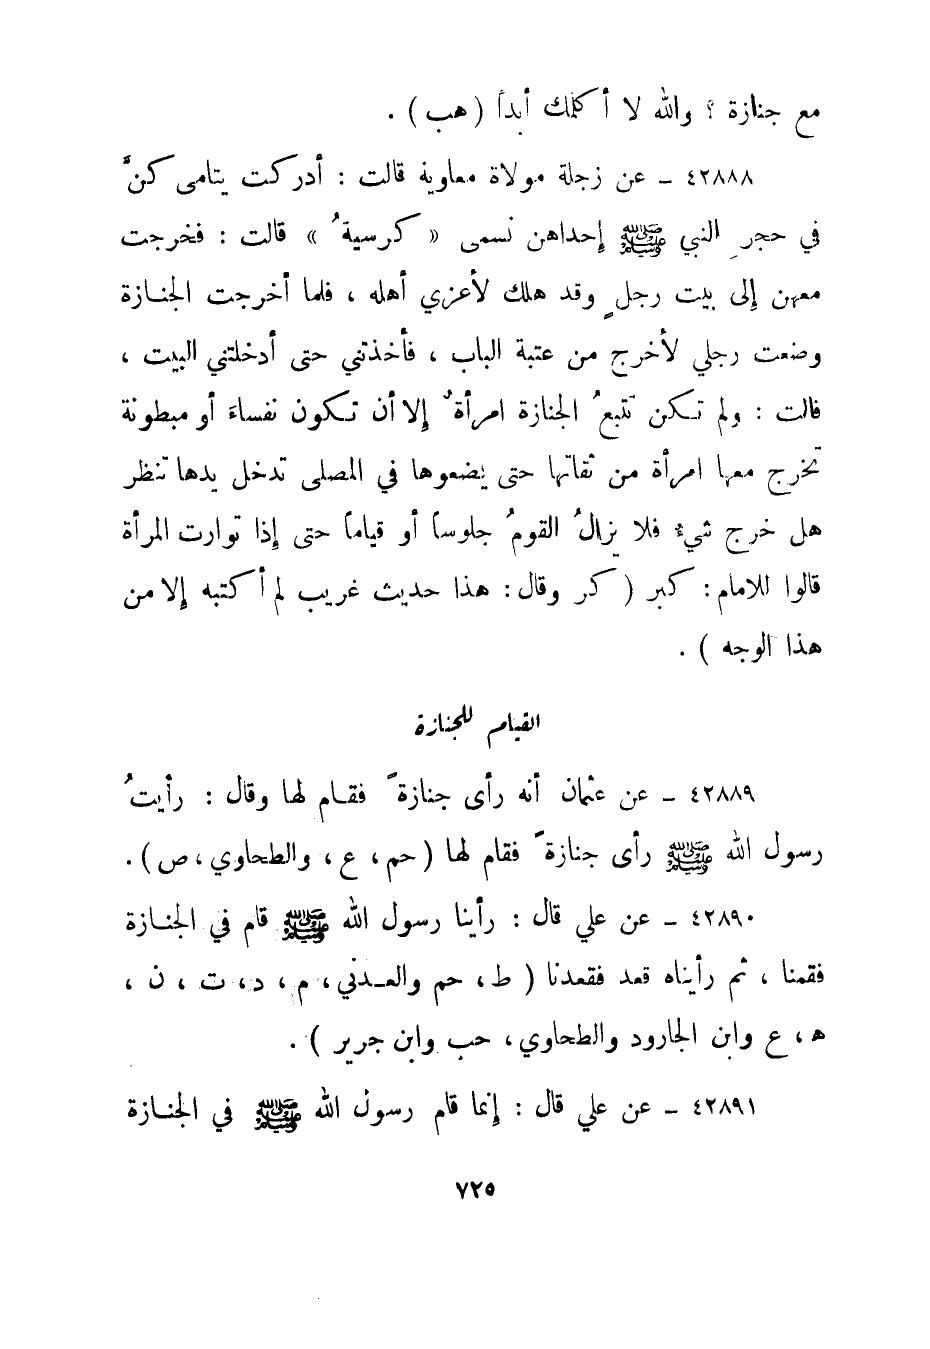 مع جنازة ؟ والله لا أكلمك أبداً ( هب ) .
٤٢٨٨٨ ـ عن زجلة مولاة معاوية قالت : أدركت يتامى كنَّ
في حجرِ النبي ﷺ إحداهن تسمى « كرسيةُ » قالت : فخرجت
معهن إلى بيت رجلٍ وقد هلك لأعزي أهله ، فلما أخرجت الجنـازة
وضعت رجلي لأخرج من عتبة الباب ، فأخذتني حتى أدخلتني البيت ،
قالت : ولم تـكن تتبعُ الجنازة امرأةٌ إلا أن تـكون نفساءَ أو مبطونة
تخرج معها امرأة من ثقاتها حتى يضعوها في المصلى تدخل يدها تنظر
هل خرج شيءٌ فلا يزالُ القومُ جلوساً أو قياماً حتى إذا توارت المرأة
قالوا للامام : كبر ( كر وقال : هذا حديث غريب لم أكتبه إلا من
هذا الوجه ) .
القيام للجنازة
٤٢٨٨٩ ـ عن عثمان أنه رأى جنازةً فقـام لها وقال : رأيتُ
رسول الله ﷺ رأى جنازةً فقام لها ( حم ، ع ، والطحاوي ، ص ) .
٤٢٨٩٠ ـ عن علي قال : رأينا رسول الله ﷺ قام في الجنـازة
فقمنا ، ثم رأيناه قعد فقعدنا ( ط ، حم والعـدني ، م ، د ، ت ، ن ،
ه ، ع وابن الجارود والطحاوي ، حب وابن جرير ) .
٤٢٨٩١ ـ عن علي قال : إنما قام رسول الله ﷺ في الجنـازة
٧٢٥